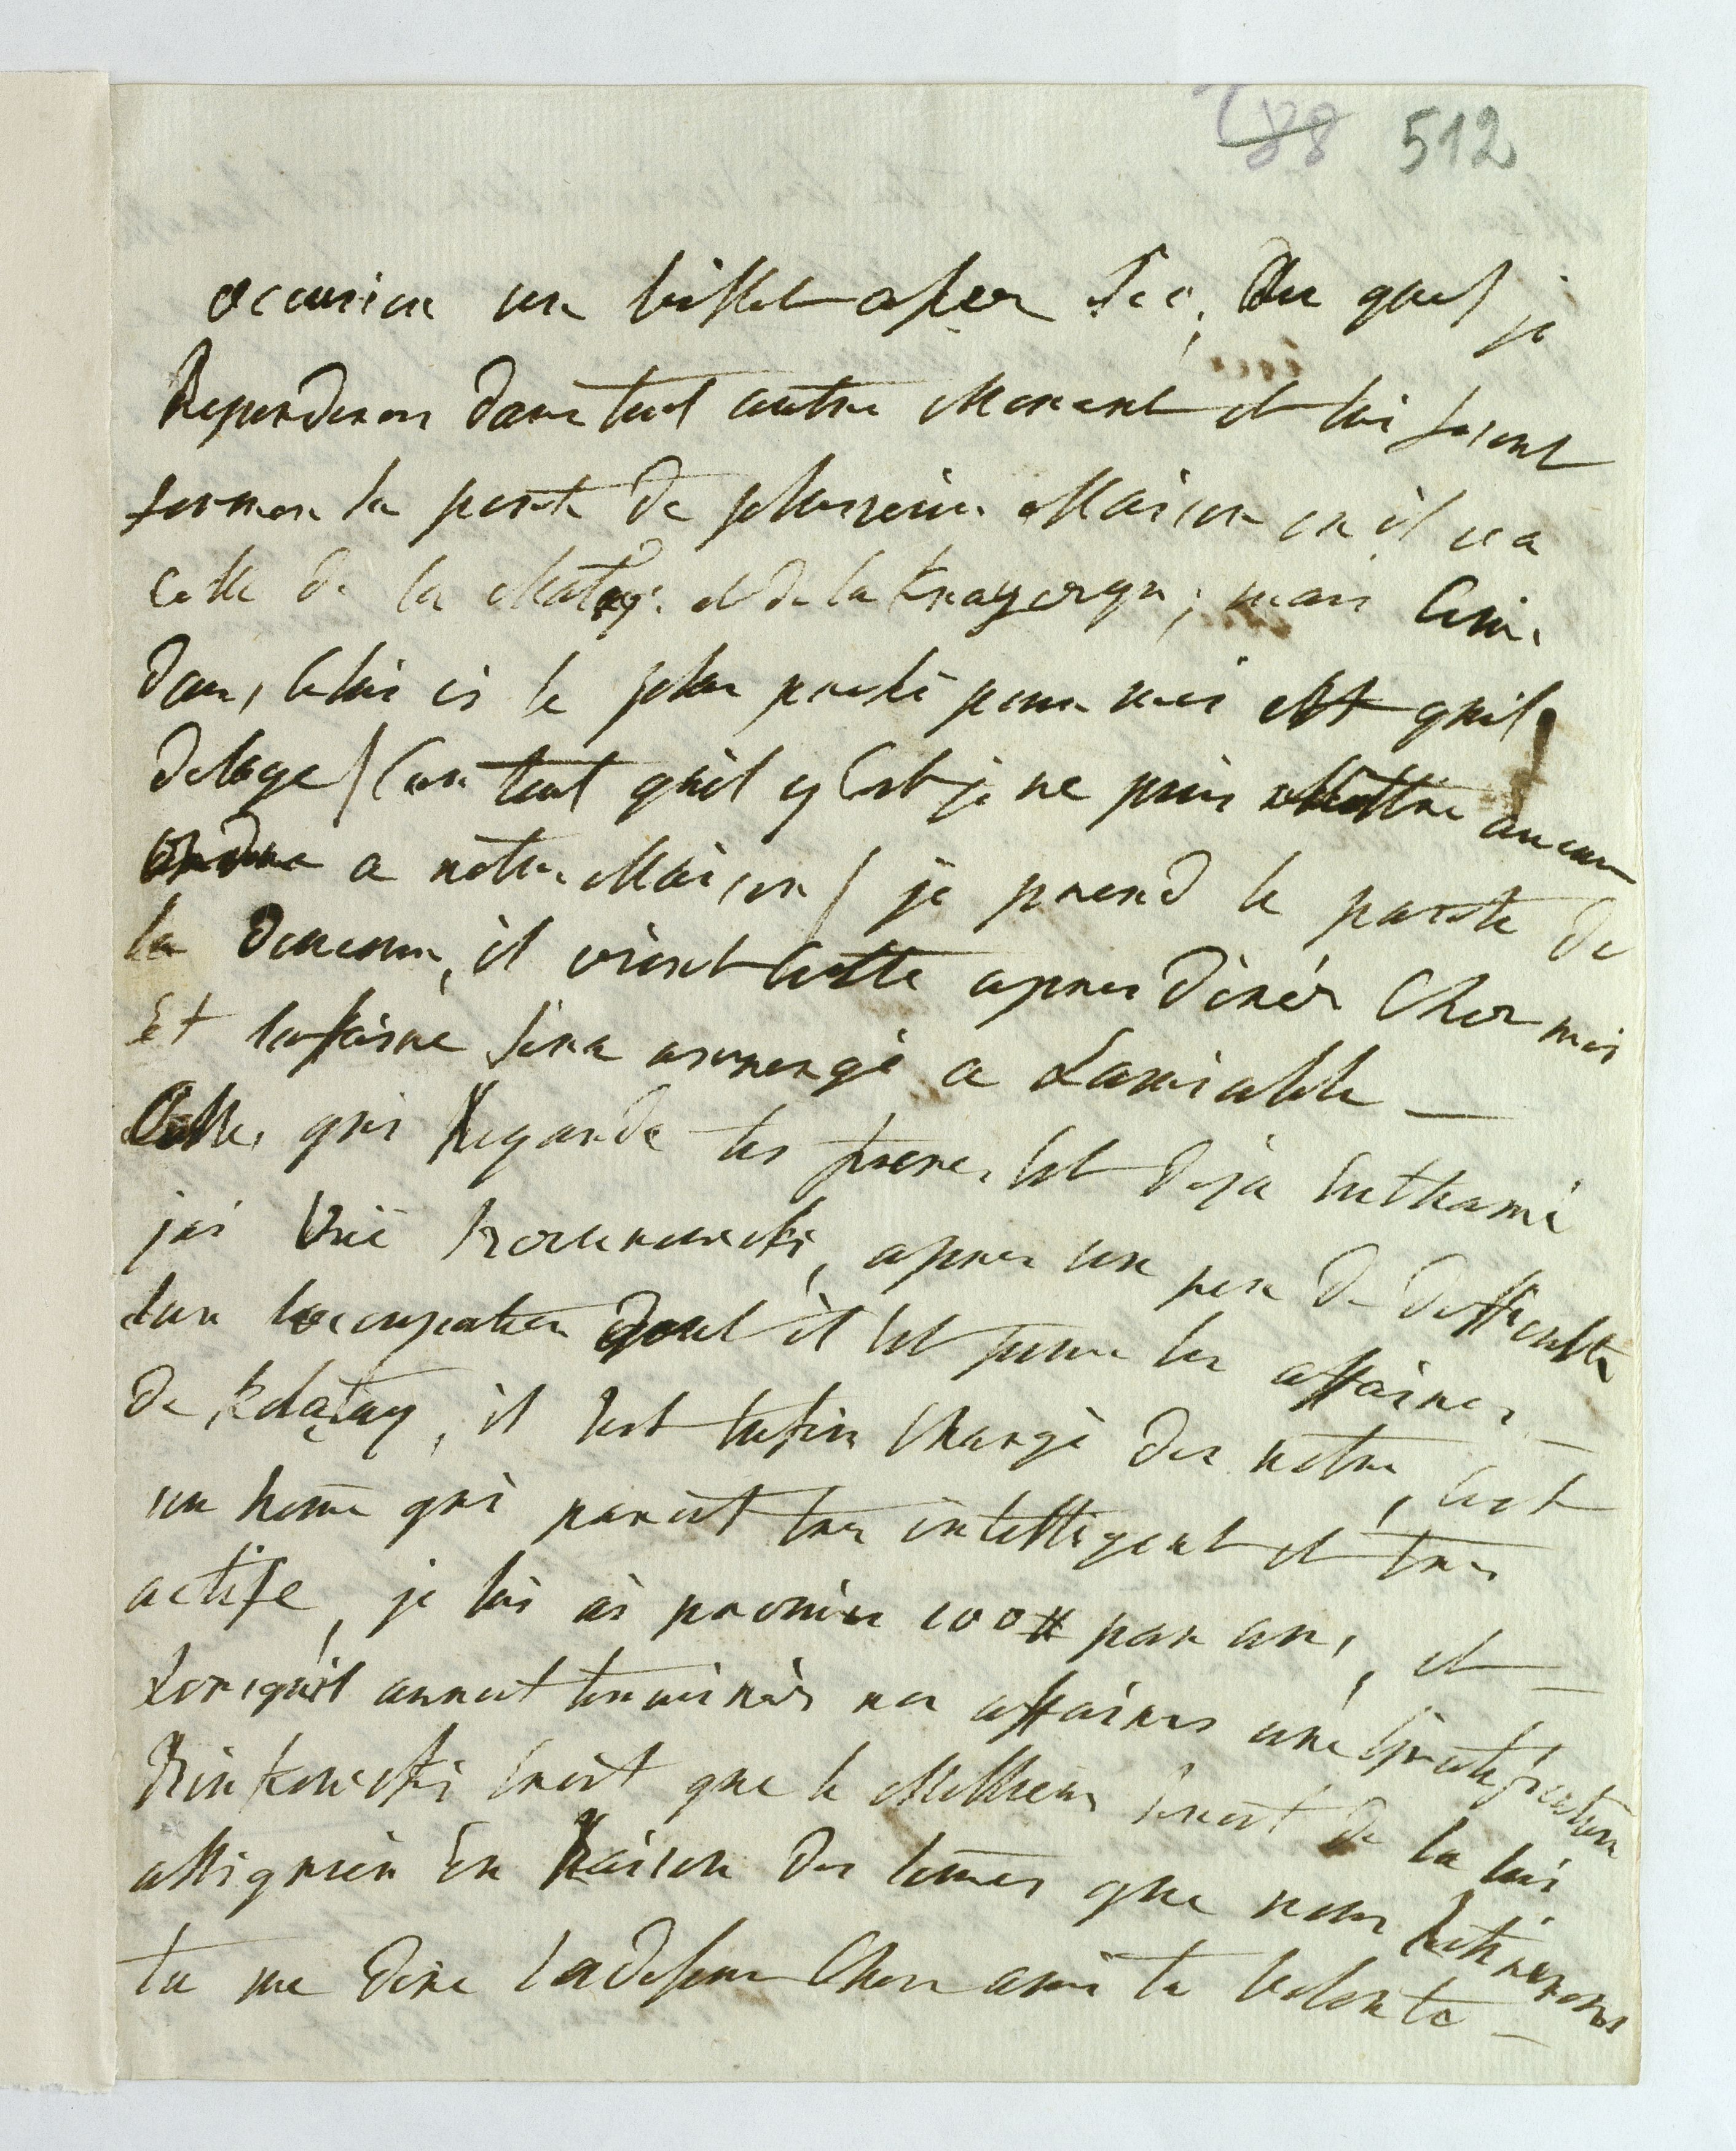 88 512
occasion un billet assez sec, du quel je
Reponderais dans tout autre Moment et lui feront
fermer la porte de plusieurs Maison ou il va
celle de la et de la ; mais
dans celui ci le plus pressé pour moi est quil
deloge / Car tant quil y est je ne puis Mettre aucun
ordre a notre Maison / je prend le parti de
la douceur, il vient cette apres diner Chez moi
Et laffaire sera arrengé a Lamiable —
Celle qui Regarde tes freres est deja enthamé
jai Vüe , apres un peu de difficulté
sur loccupation dont il est pour les affaires —
de , il sest enfin Chargé des notre, cest
un home qui paroit tres intelligent et tres
actife, je lui ai promise 100# par an, et —
Lorsquil auroit terminér nos affaires une Gratification
Rinkowski croit que le Meilleur seroit de la lui
assignier En Raison des somes que nous retirerons
tu me dire ladessus Cher ami ta volonté —